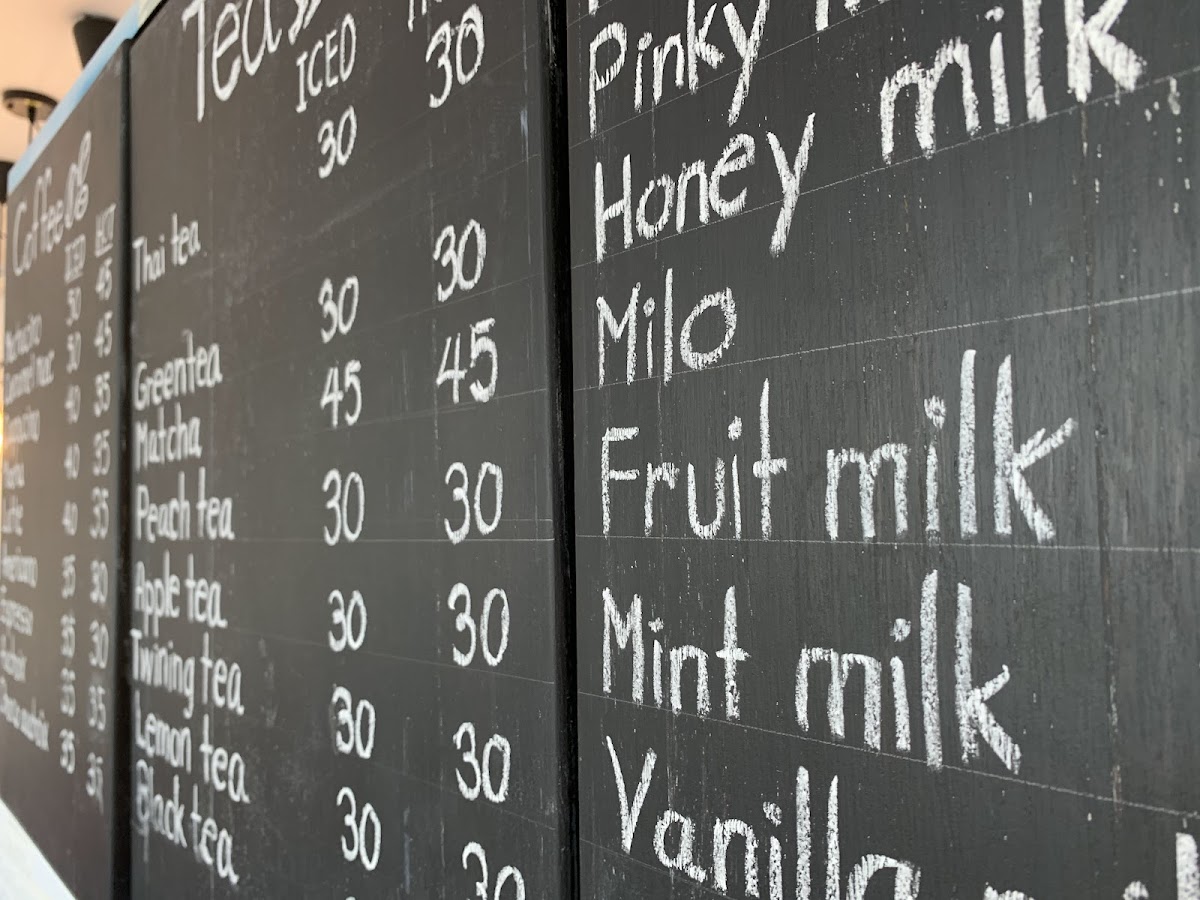 Coffee
ICED HOT
50 45
50 45
40 35
40 35
40 35
35 30
Espresso 35 30
35 35
35 35
Teas
ICED
Thai tea 30 30
Greentea 30 30
Matcha 45 45
Peach tea 30 30
Apple tea 30 30
Twining tea 30 30
Lemon tea 30 30
Black tea
Pinky milk
Honey
Milo
Fruit milk
Mint milk
Vanilla